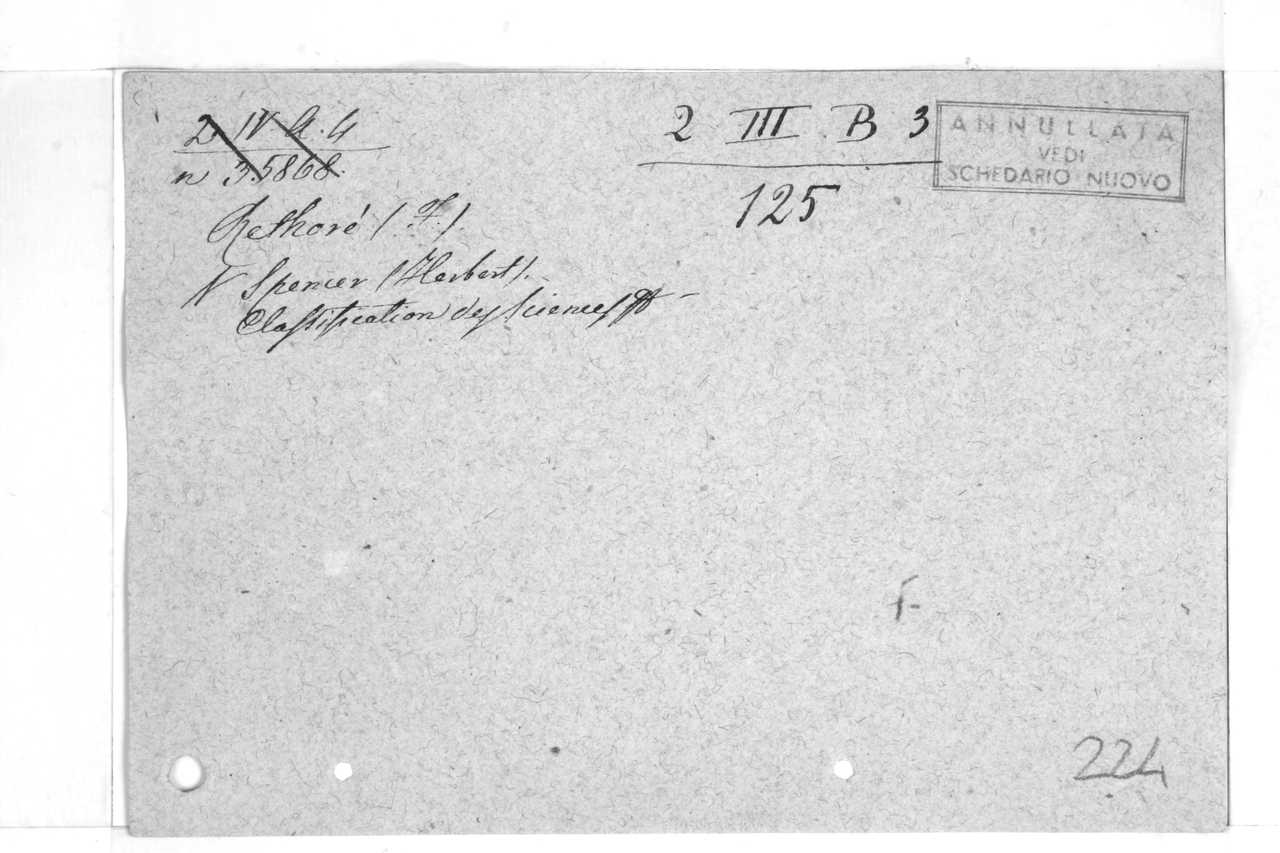 2 IV A. 4
n 3.5868.
2 III B 3
125
ANNULLATA
VEDI
SCHEDARIO NUOVO
Rethoré (F.)
V Spencer (Herbert).
Classification des Sciences
224